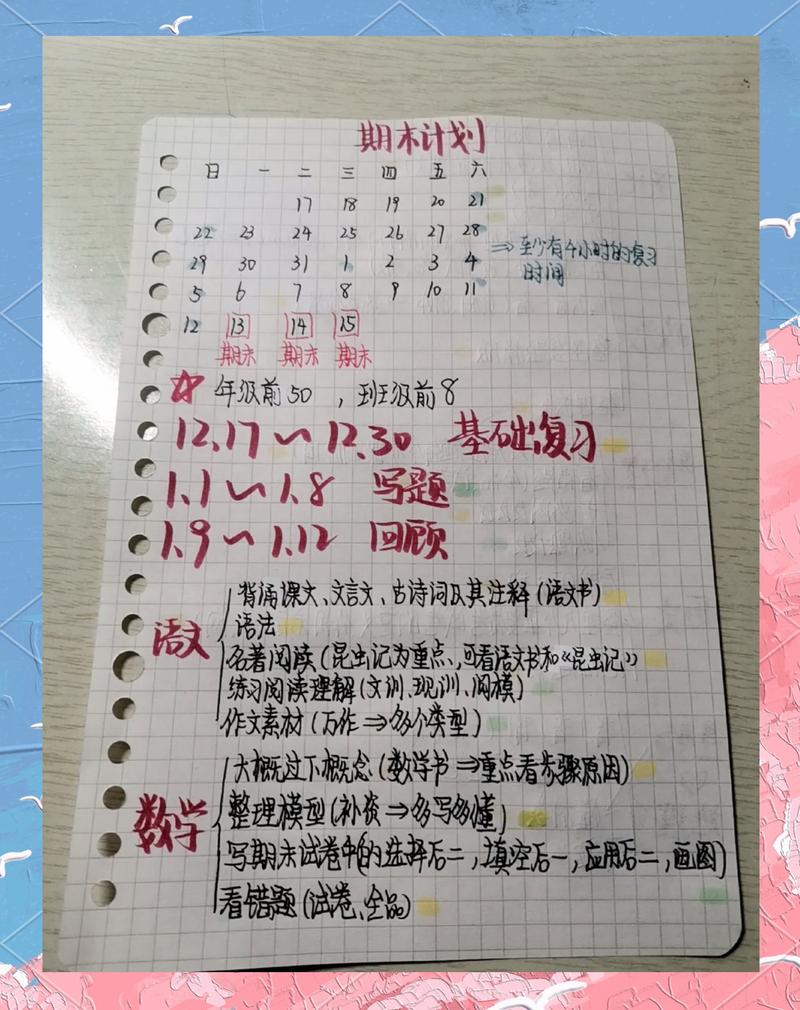 期末计划
日 一 二 三 四 五 六
17 18 19 20 21
22 23 24 25 26 27 28
⇒至少有4小时的复习
时间
29 30 31 1 2 3 4
5 6 7 8 9 10 11
12 13 14 15
期末 期末 期末
☆ 年级前50，班级前8
12.17～12.30 基础复习
1.1～1.8 写题
1.9～1.12 回顾
语文
背诵课文、文言文、古诗词及其注释(语文书)
语法
名著阅读(昆虫记为重点,可看语文书和《昆虫记》)
练习阅读理解(文训、现训、阅模)
作文素材(万作⇒多个类型)
数学
大概过下概念(数学书⇒重点看步骤原因)
整理模型(补资⇒多写多懂)
写期末试卷中(的选择后二,填空后一,应用后二,画图)
看错题(试卷、全品)